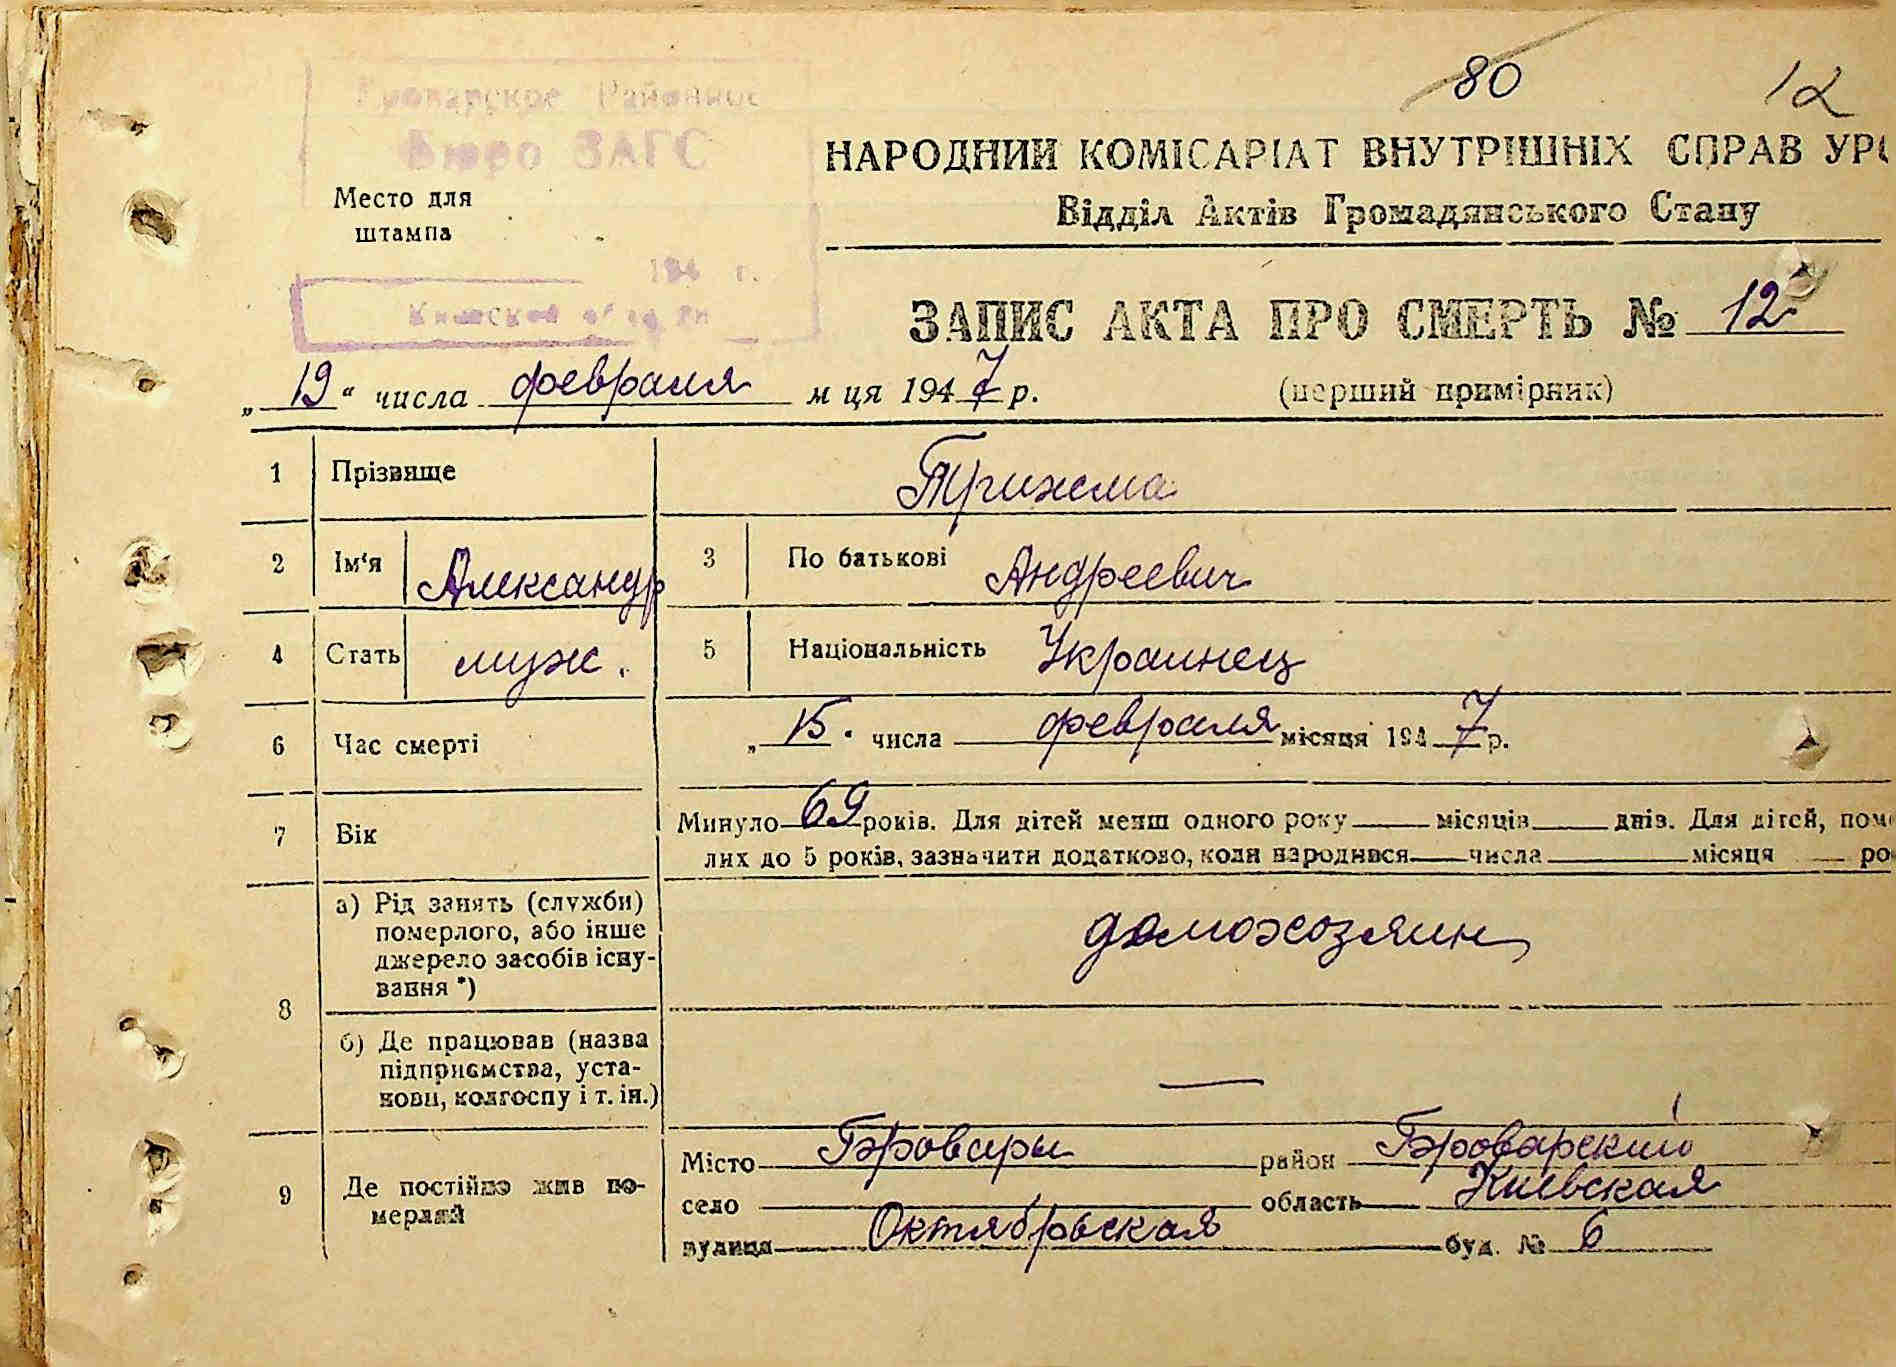 80 12
Броварское Районное
Бюро ЗАГС
НАРОДНИЙ КОМІСАРІАТ ВНУТРІШНІХ СПРАВ УРС
Место для
штампа
Відділ Актів Громадянського Стану
194 г.
Киевской области
ЗАПИС АКТА ПРО СМЕРТЬ № 12
„19“ числа февраля м ця 1947 р. (перший примірник)
1 Прізвище Трихема
2 Ім'я Александр 3 По батькові Андреевич
4 Стать муж. 5 Національність Украинец
6 Час смерті „15" числа февраля місяця 1947 р.
7 Вік Минуло 69 років. Для дітей менш одного року місяців днів. Для дітей, поме
лих до 5 років, зазначити додатково, коли народився числа місяця ро
8 а) Рід занять (служби)
померлого, або інше
джерело засобів існу-
вання *)
домохозяин
б) Де працював (назва
підприємства, уста-
нови, колгоспу і т. ін.)
—
9 Де постійно жив по-
мерлий
Місто Бровары район Броварский
село область Киевская
вулиця Октябрьская буд. № 6